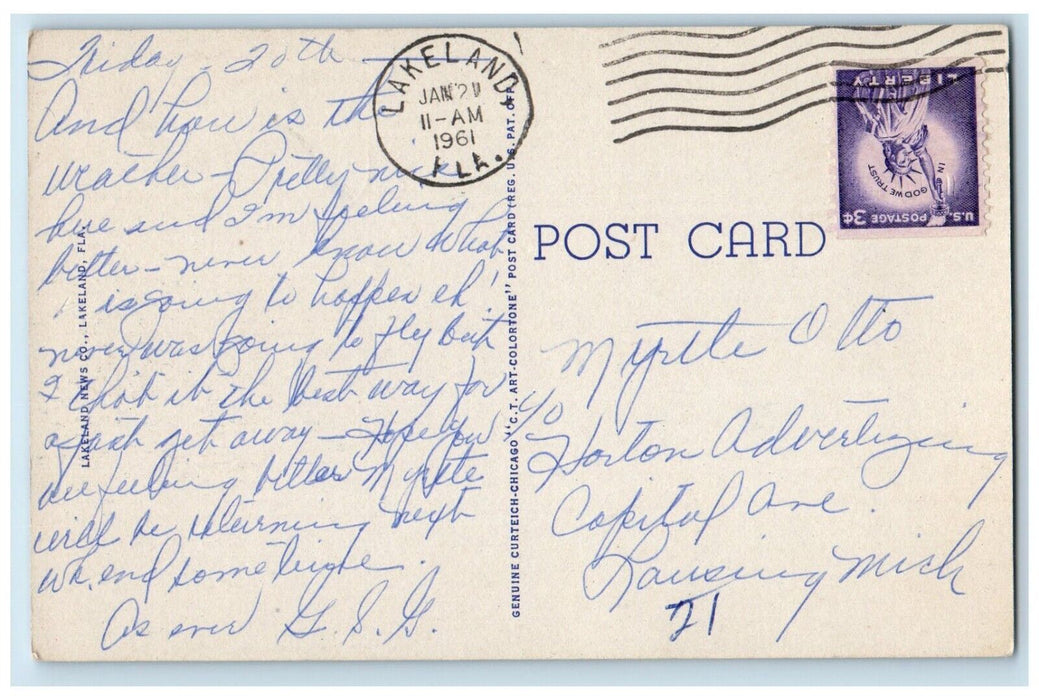 Friday - 20th -
And how is the
weather - Pretty nice
here and I'm feeling
better - never know what
is going to happen eh!
never was going to fly but
I that is the best way for
a fast get away - Hope you
are feeling better Myrtle
will be returning next
wk. end sometime.
As ever G. S. G.
LAKELAND NEWS CO., LAKELAND, FLA.
LAKELAND,
JAN 21
11-AM
1961
FLA.
GENUINE CURTEICH-CHICAGO "C.T. ART-COLORTONE" POST CARD (REG. U.S. PAT. OFF.)
POST CARD
LIBERTY
IN GOD WE TRUST
U.S. POSTAGE 3¢
Myrtle Otto
c/o
Horton Advertizing
Capitol Ave.
Lansing Mich
21